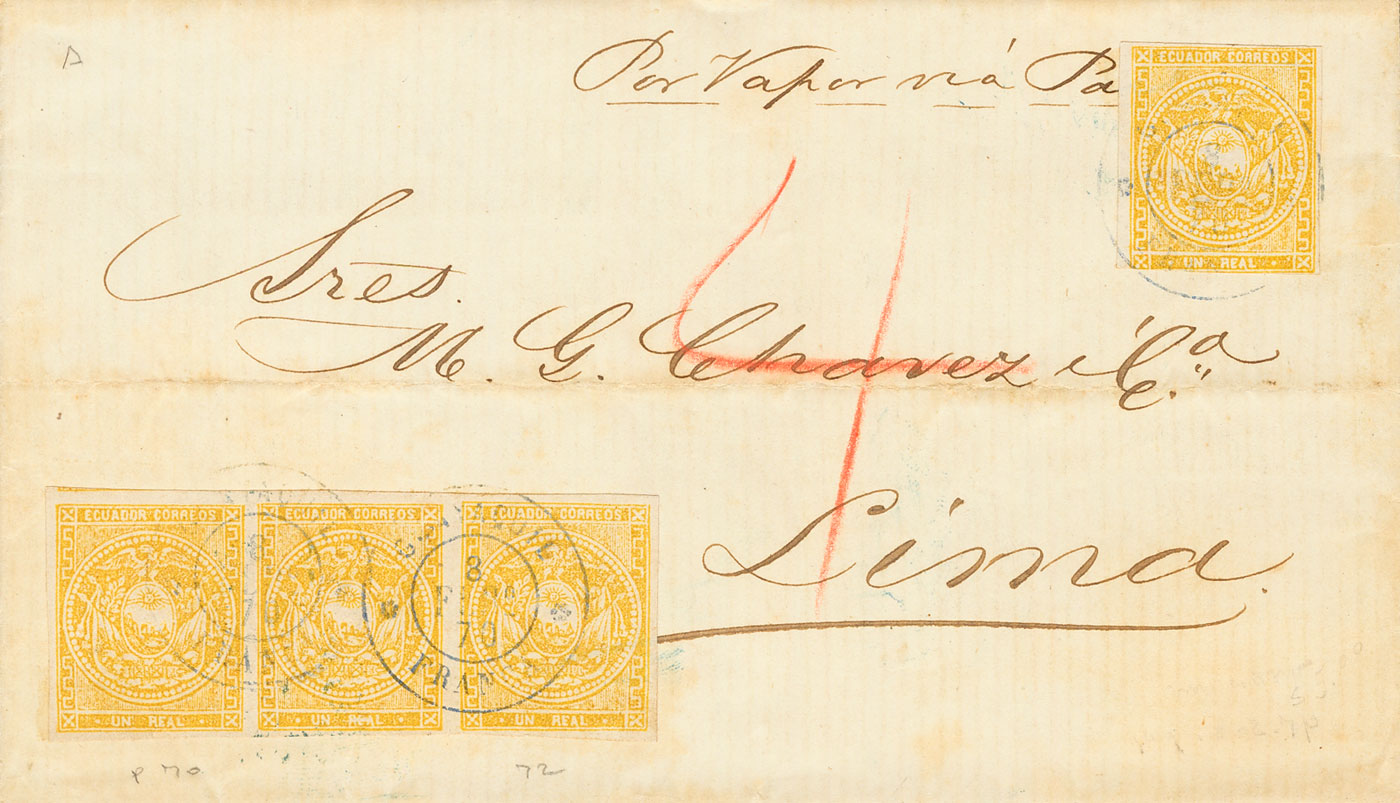 Por Vapor viá Pa
ECUADOR CORREOS
UN REAL
Sres.
M. G. Chavez i Ca
Lima.
4
ECUADOR CORREOS
UN REAL
ECUADOR CORREOS
UN REAL
ECUADOR CORREOS
UN REAL
GUAYAQUIL
8
70
FRAN
p 70
72